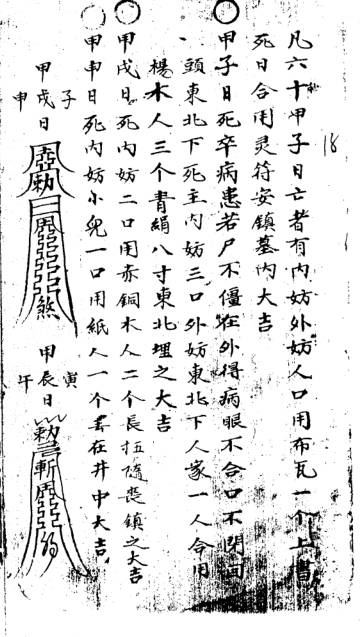 18
凡六十甲子日亡者有内妨外妨人口用布瓦一个上書
死日合用灵符安鎮墓内大吉
甲子日死卒病患若尸不僵在外得病眼不合口不閉面
頭東北下死主内妨三口外妨東北下人家一人合用
楊木人三个青絹八寸東北埋之大吉
甲戌日死内妨二口用赤銅木人二个長伍随喪鎮之大吉
甲申日死内妨小兒一口用紙人一个書在井中大吉
甲戌日
子
申
敕
煞
甲辰日
寅
午
敕
斬